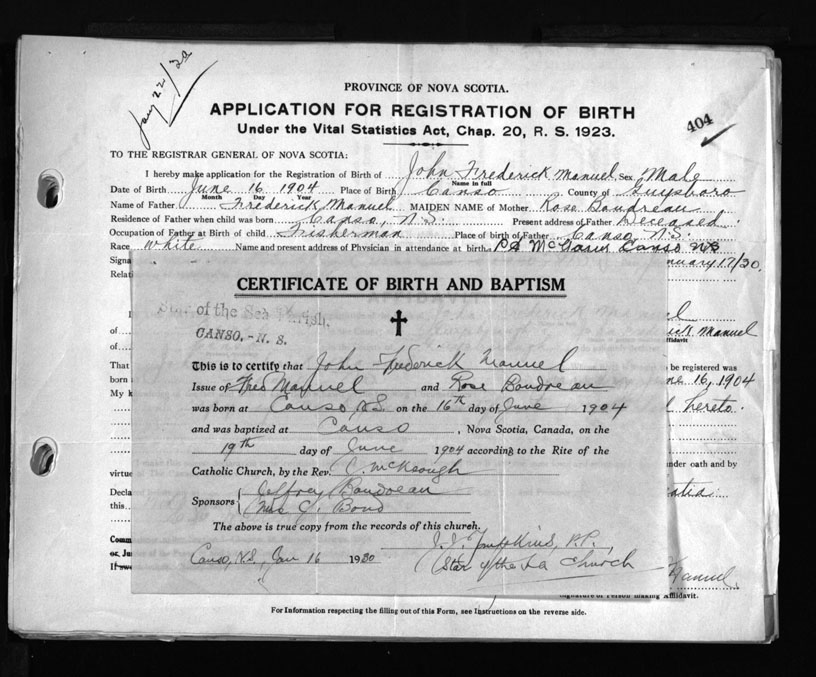 Jany 22/30
PROVINCE OF NOVA SCOTIA.
APPLICATION FOR REGISTRATION OF BIRTH
Under the Vital Statistics Act, Chap. 20, R. S. 1923.
404
TO THE REGISTRAR GENERAL OF NOVA SCOTIA:
I hereby make application for the Registration of Birth of John Frederick Manuel Sex Male
Name in full
Date of Birth June 16 1904 Place of Birth Canso County of Guysboro
Month Day Year
Name of Father Frederick Manuel MAIDEN NAME of Mother Rose Boudreau
Residence of Father when child was born Canso, N.S. Present address of Father Deceased
Occupation of Father at Birth of child Fisherman Place of birth of Father Canso N.S.
Race White Name and present address of Physician in attendance at birth Canso NS
Signa nuary 17/30.
Relati
CERTIFICATE OF BIRTH AND BAPTISM
Star of the Sea Parish,
CANSO, - N. S.
This is to certify that John Frederick Manuel
Issue of Fred Manuel and Rose Boudreau
was born at Canso N.S. on the 16th day of June 1904
and was baptized at Canso, Nova Scotia, Canada, on the
19th day of June 1904 according to the Rite of the
Catholic Church, by the Rev. C. McKeough
Sponsors Jeffrey Boudreau
Mrs C. J. Bond
The above is true copy from the records of this church.
J. J. Tompkins, P.P.,
Canso, N.S., Jan 16 1930 Star of the Sea Church
of
rick Manuel
ffidavit
of
That be registered was
born ne 16, 1904
My k hereto.
under oath and by
virtue
Decla
this
Comm
or, Ju
If swo Manuel.
Signature of Person making Affidavit.
For Information respecting the filling out of this Form, see Instructions on the reverse side.